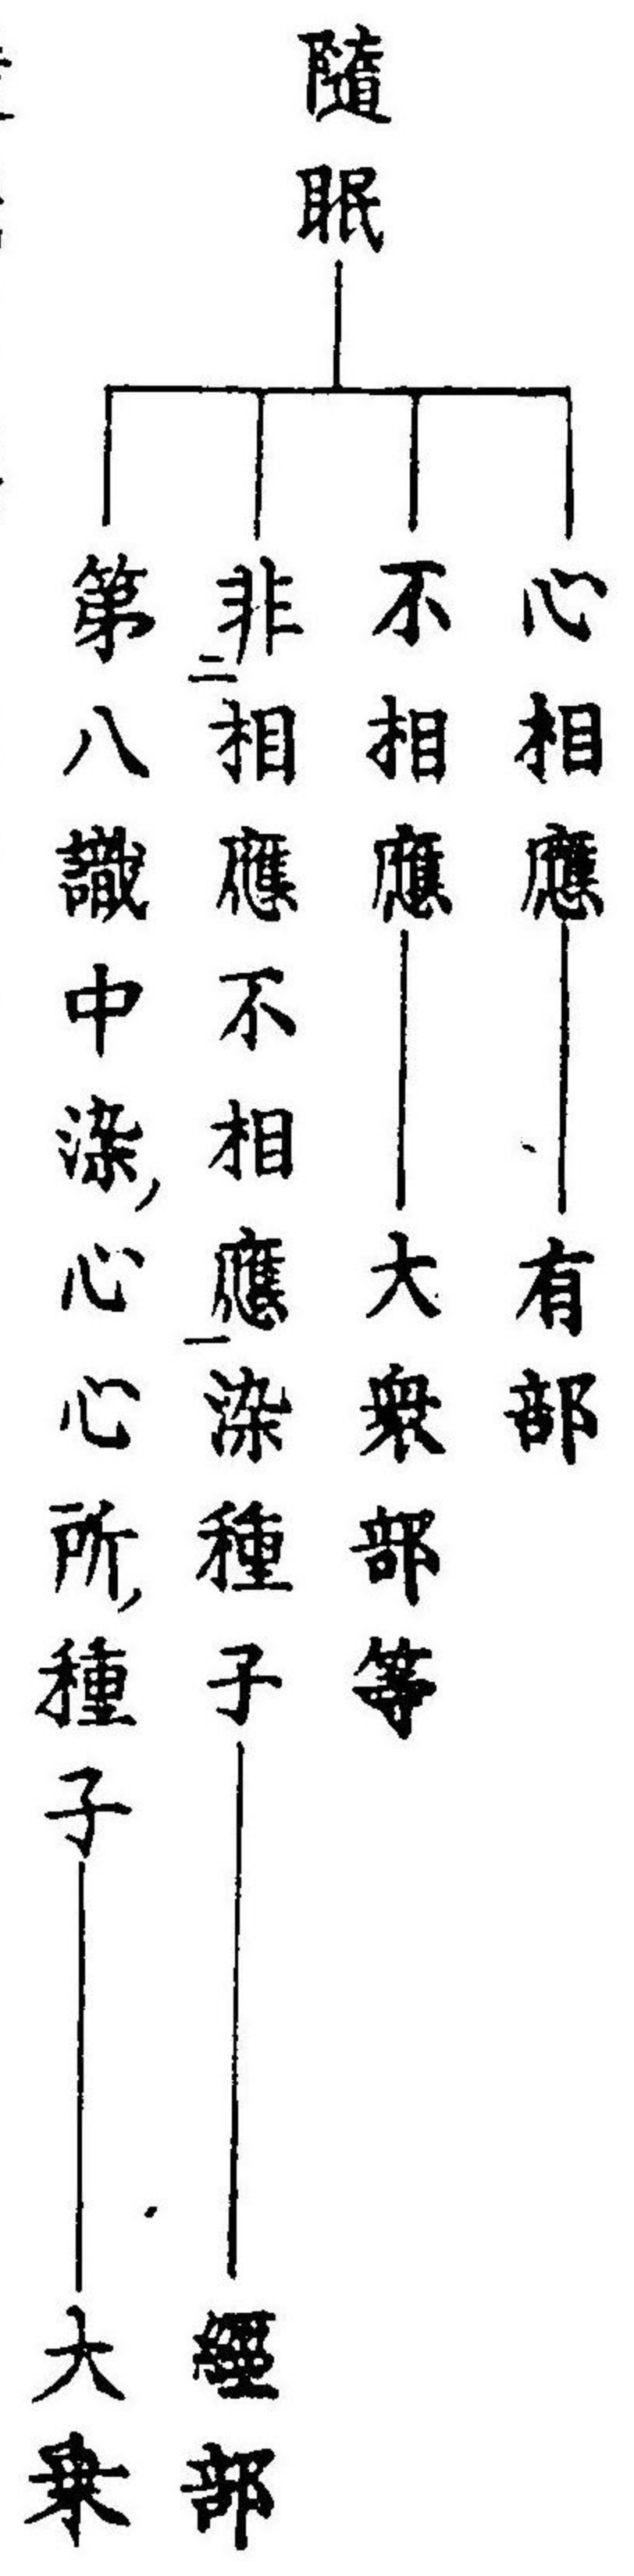 隨眠
心相應——有部
不相應——大衆部等
非二相應不相應一染種子——經部
第八識中染,心心所,種子——大乗